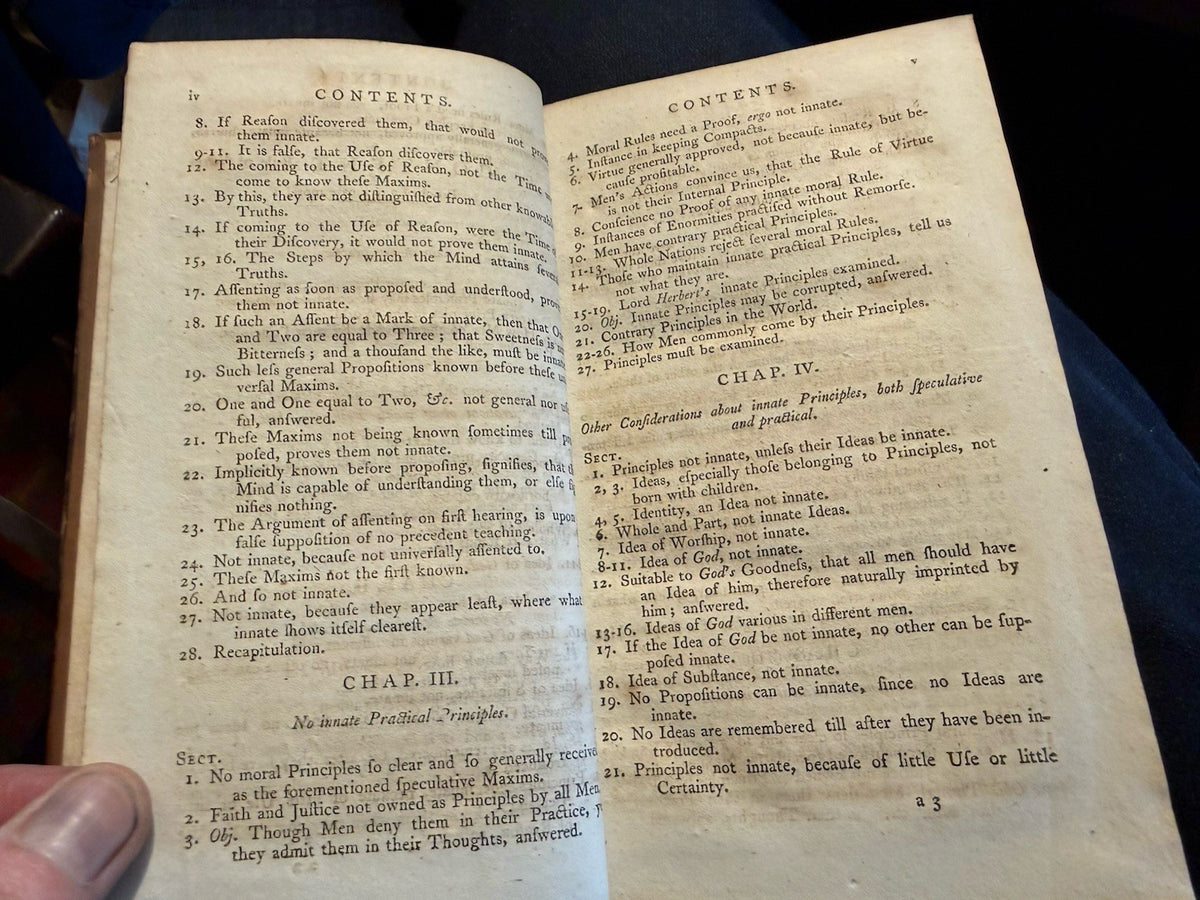 iv
CONTENTS.
8. If Reaſon diſcovered them, that would not
them innate.
9-11. It is falſe, that Reaſon diſcovers them.
12. The coming to the Uſe of Reaſon, not the Time
come to know theſe Maxims.
13. By this, they are not diſtinguiſhed from other
Truths.
14. If coming to the Uſe of Reaſon, were the Time
their Diſcovery, it would not prove them innate.
15, 16. The Steps by which the Mind attains
Truths.
17. Aſſenting as ſoon as propoſed and underſtood,
them not innate.
18. If ſuch an Aſſent be a Mark of innate, then that
and Two are equal to Three; that Sweetneſs is
Bitterneſs; and a thouſand the like, muſt be
19. Such leſs general Propoſitions known before theſe
verſal Maxims.
20. One and One equal to Two, &c. not general nor
ful, anſwered.
21. Theſe Maxims not being known ſometimes till
poſed, proves them not innate.
22. Implicitly known before propoſing, ſignifies, that
Mind is capable of underſtanding them, or elſe
nifies nothing.
23. The Argument of aſſenting on firſt hearing, is upon
falſe ſuppoſition of no precedent teaching.
24. Not innate, becauſe not univerſally aſſented to.
25. Theſe Maxims not the firſt known.
26. And ſo not innate.
27. Not innate, becauſe they appear leaſt, where what
innate ſhows itſelf cleareſt.
28. Recapitulation.
CHAP. III.
No innate Practical Principles.
SECT.
1. No moral Principles ſo clear and ſo generally
as the forementioned ſpeculative Maxims.
2. Faith and Juſtice not owned as Principles by all Men
3. Obj. Though Men deny them in their Practice,
they admit them in their Thoughts, anſwered.
v
CONTENTS.
4. Moral Rules need a Proof, ergo not innate.
5. Inſtance in keeping Compacts.
6. Virtue generally approved, not becauſe innate, but be-
cauſe profitable.
7. Men's Actions convince us, that the Rule of Virtue
is not their Internal Principle.
8. Conſcience no Proof of any innate moral Rule.
9. Inſtances of Enormities practiſed without Remorſe.
10. Men have contrary practical Principles.
11-13. Whole Nations reject ſeveral moral Rules.
14. Thoſe who maintain innate practical Principles, tell us
not what they are.
15-19. Lord Herbert's innate Principles examined.
20. Obj. Innate Principles may be corrupted, anſwered.
21. Contrary Principles in the World.
22-26. How Men commonly come by their Principles.
27. Principles muſt be examined.
CHAP. IV.
Other Conſiderations about innate Principles, both ſpeculative
and practical.
SECT.
1. Principles not innate, unleſs their Ideas be innate.
2, 3. Ideas, eſpecially thoſe belonging to Principles, not
born with children.
4, 5. Identity, an Idea not innate.
6. Whole and Part, not innate Ideas.
7. Idea of Worſhip, not innate.
8-11. Idea of God, not innate.
12. Suitable to God's Goodneſs, that all men ſhould have
an Idea of him, therefore naturally imprinted by
him; anſwered.
13-16. Ideas of God various in different men.
17. If the Idea of God be not innate, no other can be ſup-
poſed innate.
18. Idea of Subſtance, not innate.
19. No Propoſitions can be innate, ſince no Ideas are
innate.
20. No Ideas are remembered till after they have been in-
troduced.
21. Principles not innate, becauſe of little Uſe or little
Certainty.
a 3